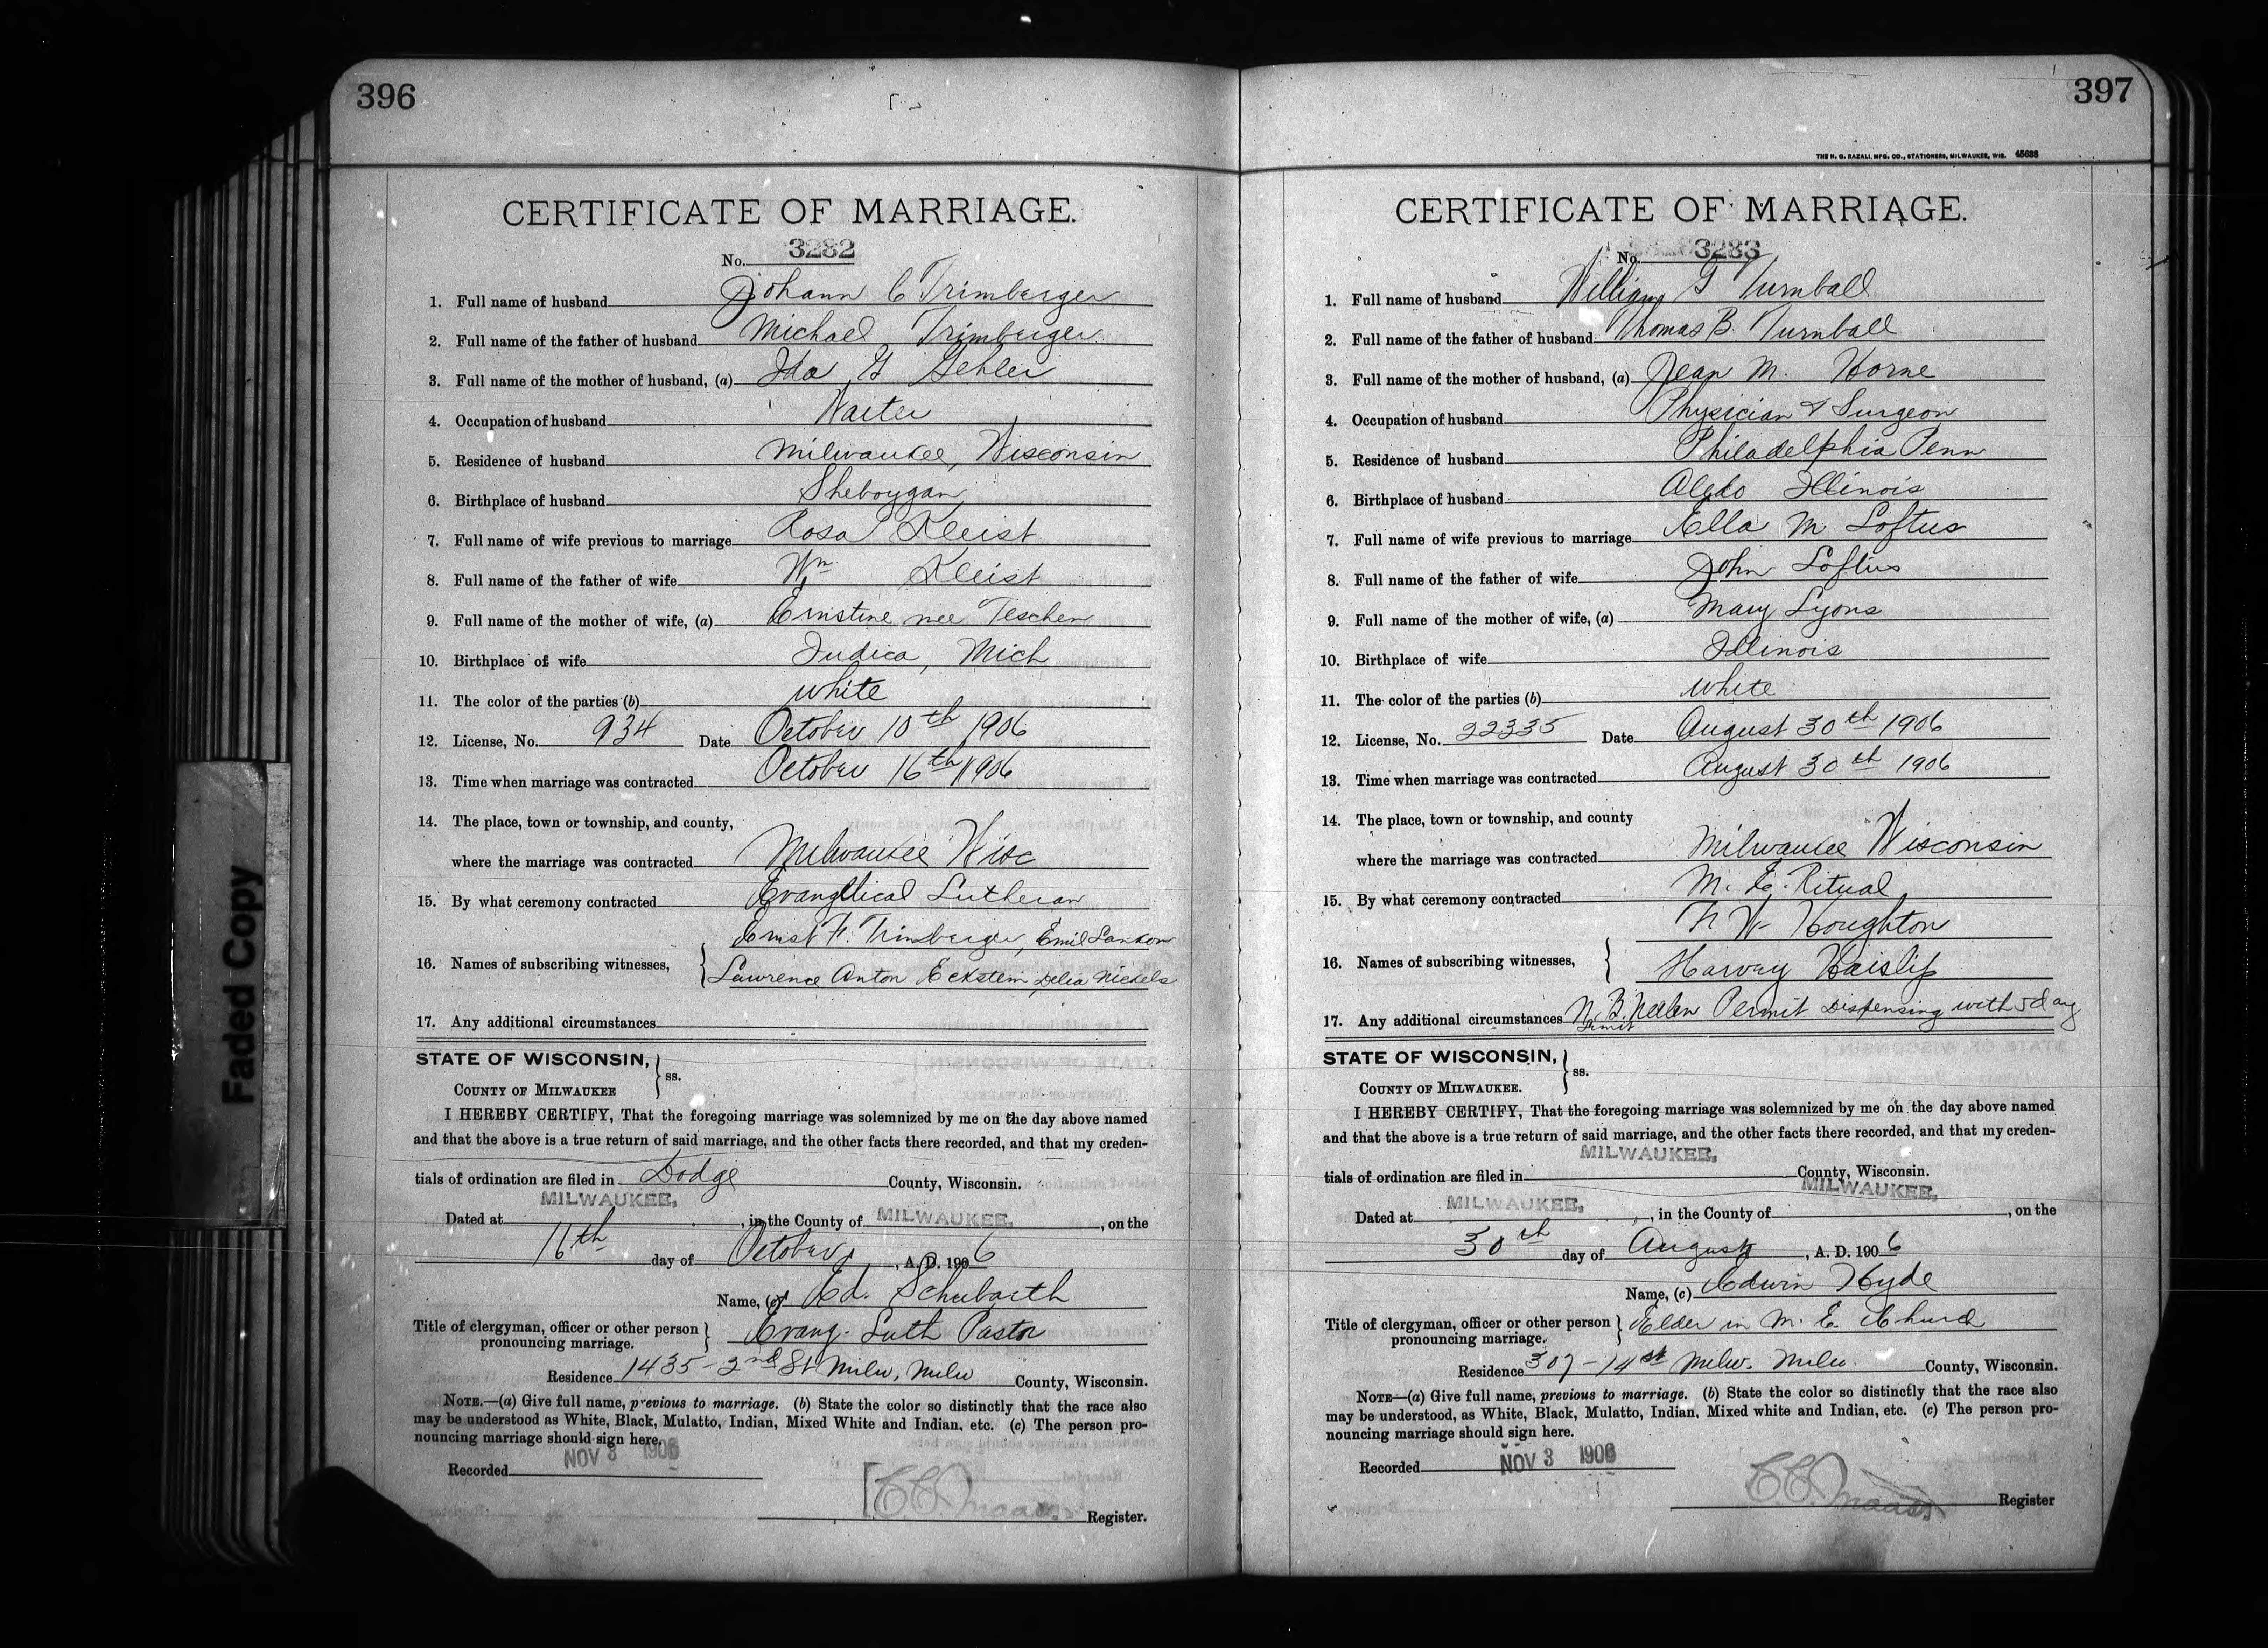 396
CERTIFICATE OF MARRIAGE.
No. 3282
1. Full name of husband Johann C Trimberger
2. Full name of the father of husband Michael Trimberger
3. Full name of the mother of husband, (a) Ida G Gehler
4. Occupation of husband Waiter
5. Residence of husband Milwaukee, Wisconsin
6. Birthplace of husband Sheboygan
7. Full name of wife previous to marriage Rosa Kleist
8. Full name of the father of wife Wm Kleist
9. Full name of the mother of wife, (a) Ernstine nee Teschen
10. Birthplace of wife Judica, Mich
11. The color of the parties (b) white
12. License, No. 934 Date October 10th 1906
13. Time when marriage was contracted October 16th 1906
14. The place, town or township, and county,
where the marriage was contracted Milwaukee Wisc
15. By what ceremony contracted Evangelical Lutheran
Ernst F. Trimberger, Emil Lankow
16. Names of subscribing witnesses, Lawrence Anton Eckstein, Delia Nickels
17. Any additional circumstances
STATE OF WISCONSIN,
ss.
COUNTY OF MILWAUKEE
I HEREBY CERTIFY, That the foregoing marriage was solemnized by me on the day above named
and that the above is a true return of said marriage, and the other facts there recorded, and that my creden-
tials of ordination are filed in Dodge County, Wisconsin.
Dated at MILWAUKEE, in the County of MILWAUKEE, on the
16th day of October, A. D. 1906
Name, (c) Ed. Schubarth
Title of clergyman, officer or other person
pronouncing marriage. Evang. Luth Pastor
Residence 1435 - 2nd St Milw, Milw County, Wisconsin.
NOTE.—(a) Give full name, previous to marriage. (b) State the color so distinctly that the race also
may be understood as White, Black, Mulatto, Indian, Mixed White and Indian, etc. (c) The person pro-
nouncing marriage should sign here.
Recorded NOV 3 1906
Register.
397
THE H. G. RAZALL MFG. CO., STATIONERS, MILWAUKEE, WIS. 45638
CERTIFICATE OF MARRIAGE.
No. 3283
1. Full name of husband William G Turnball
2. Full name of the father of husband Thomas B. Turnball
3. Full name of the mother of husband, (a) Jean M. Horne
4. Occupation of husband Physician & Surgeon
5. Residence of husband Philadelphia Penn
6. Birthplace of husband Aledo Illinois
7. Full name of wife previous to marriage Ella M Loftus
8. Full name of the father of wife John Loftus
9. Full name of the mother of wife, (a) Mary Lyons
10. Birthplace of wife Illinois
11. The color of the parties (b) white
12. License, No. 22335 Date August 30th 1906
13. Time when marriage was contracted August 30th 1906
14. The place, town or township, and county
where the marriage was contracted Milwaukee Wisconsin
15. By what ceremony contracted M. E. Ritual
W. Houghton
16. Names of subscribing witnesses, Harvey Haislip
17. Any additional circumstances N. B. Neelen Permit Dispensing with 5 day
Limit
STATE OF WISCONSIN,
ss.
COUNTY OF MILWAUKEE.
I HEREBY CERTIFY, That the foregoing marriage was solemnized by me on the day above named
and that the above is a true return of said marriage, and the other facts there recorded, and that my creden-
tials of ordination are filed in MILWAUKEE, County, Wisconsin.
Dated at MILWAUKEE, in the County of MILWAUKEE, on the
30th day of August, A. D. 1906
Name, (c) Edwin Hyde
Title of clergyman, officer or other person
pronouncing marriage. Elder in M. E. Church
Residence 307 - 14st Milw. Milw. County, Wisconsin.
NOTE—(a) Give full name, previous to marriage. (b) State the color so distinctly that the race also
may be understood, as White, Black, Mulatto, Indian, Mixed white and Indian, etc. (c) The person pro-
nouncing marriage should sign here.
Recorded NOV 3 1906
Register
Faded Copy